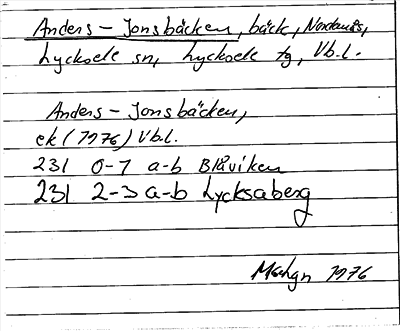 Anders-Jonsbäcken, bäck, Nordanås,
Lycksele sn, Lycksele tg, Vb.l.
Anders-Jonsbäcken,
ek (1976) Vb.l.
231 0-1 a-b Blåviken
231 2-3 a-b Lycksaberg
1976